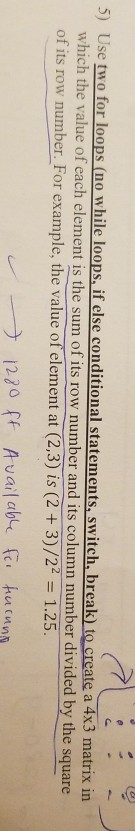 5) Use two for loops (no while loops, if else conditional statements, switch, break) to create a 4x3 matrix in
which the value of each element is the sum of its row number and its column number divided by the square
of its row number. For example, the value of element at (2,3) is (2 + 3)/2² = 1.25.
→ 1280 ft Available for